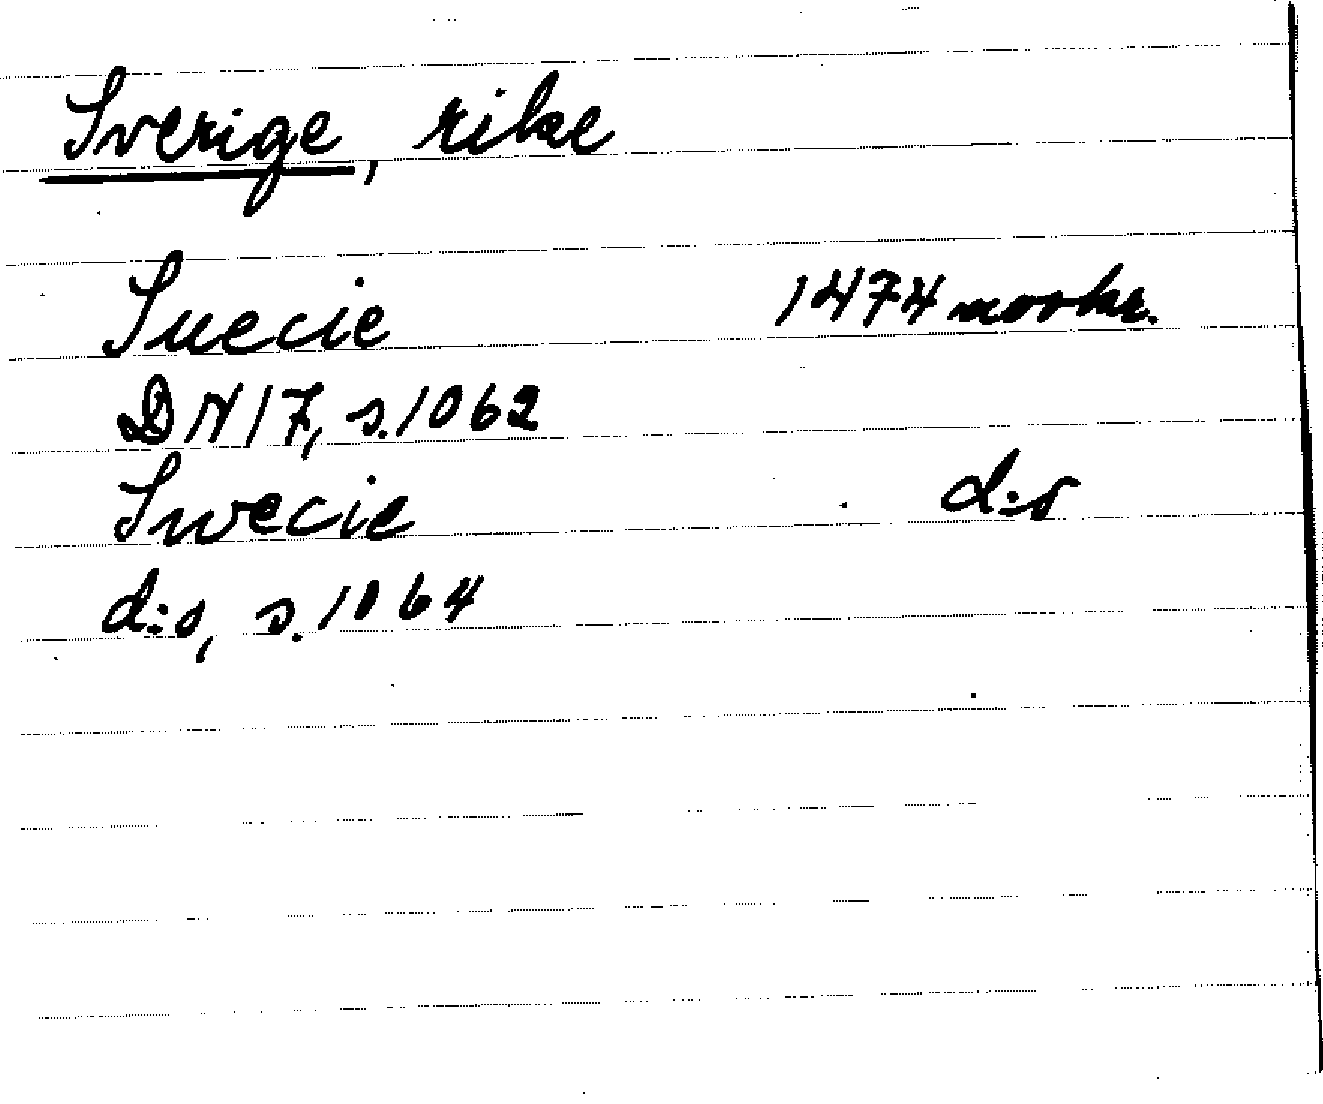 Sverige, rike
Suecie 1474 norska.
DN 17, s. 1062
Swecie d:o
d:o, s. 1064